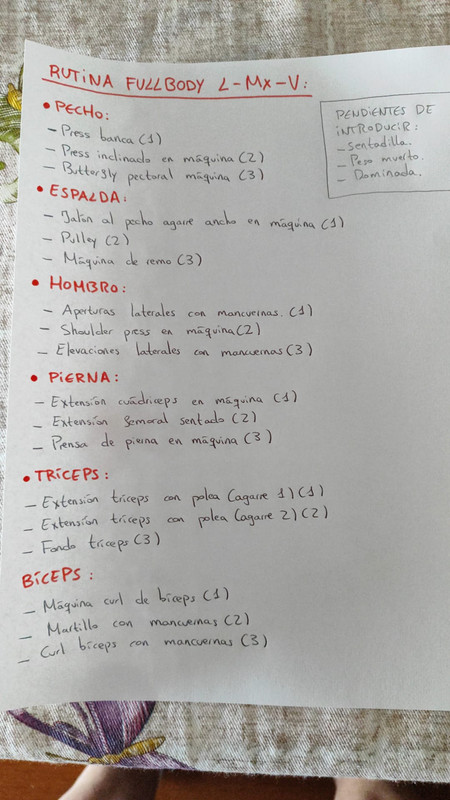 RUTINA FULLBODY L-MX-V:
• PECHO:
- Press banca (1)
- Press inclinado en máquina (2)
- Butterfly pectoral máquina (3)
PENDIENTES DE
INTRODUCIR:
- Sentadilla.
- Peso muerto.
- Dominada.
• ESPALDA:
- Jalón al pecho agarre ancho en máquina (1)
- Pulley (2)
- Máquina de remo (3)
• HOMBRO:
- Aperturas laterales con mancuernas. (1)
- Shoulder press en máquina (2)
- Elevaciones laterales con mancuernas (3)
• PIERNA:
- Extensión cuádriceps en máquina (1)
- Extensión femoral sentado (2)
- Prensa de pierna en máquina (3)
• TRÍCEPS:
- Extensión tríceps con polea (agarre 1) (1)
- Extensión tríceps con polea (agarre 2) (2)
- Fondo tríceps (3)
BÍCEPS:
- Máquina curl de bíceps (1)
- Martillo con mancuernas (2)
- Curl bíceps con mancuernas (3)